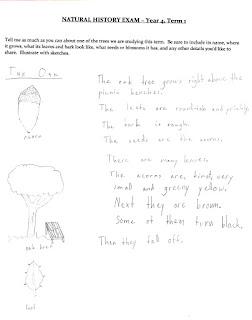 NATURAL HISTORY EXAM – Year 4, Term 1
Tell me as much as you can about one of the trees we are studying this term. Be sure to include its name, where
it grows, what its leaves and bark look like, what seeds or blossoms it has, and any other details you'd like to
share. Illustrate with sketches.
The Oak
The oak tree grows right above the
picnic benches.
The leafs are roundish and prickly.
The bark is rough.
The seeds are the acorns.
There are many leaves.
The acorns are, first, very
small and greeny yellow.
Next they are brown.
Some of them turn black.
Then they fall off.
acorn
oak tree
leaf